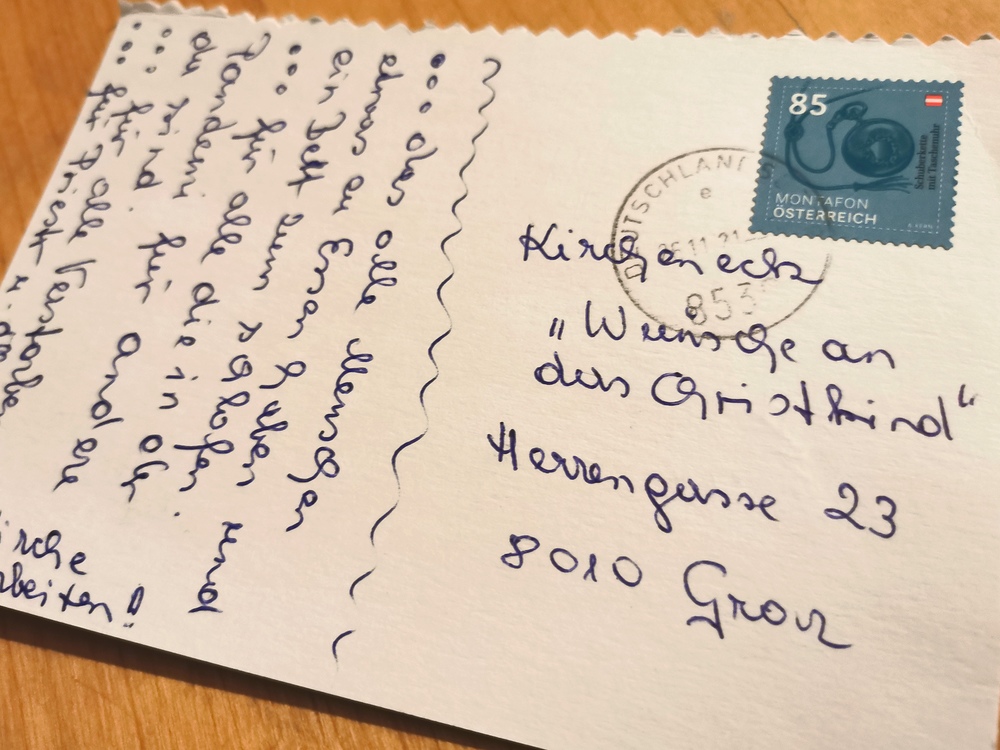 ... das alle Menschen
etwas zu Essen haben und
ein Bett zum schlafen.
... für alle die in der
Pandemi für andere
da sind.
... für alle
... für
irche
rbeiten!
85
Schuherkette
mit Taschenuhr
MONTAFON
ÖSTERREICH
DEUTSCHLAN
e
11.21
853
Kircheneck
„Wünsche an
das Christkind“
Herrengasse 23
8010 Graz